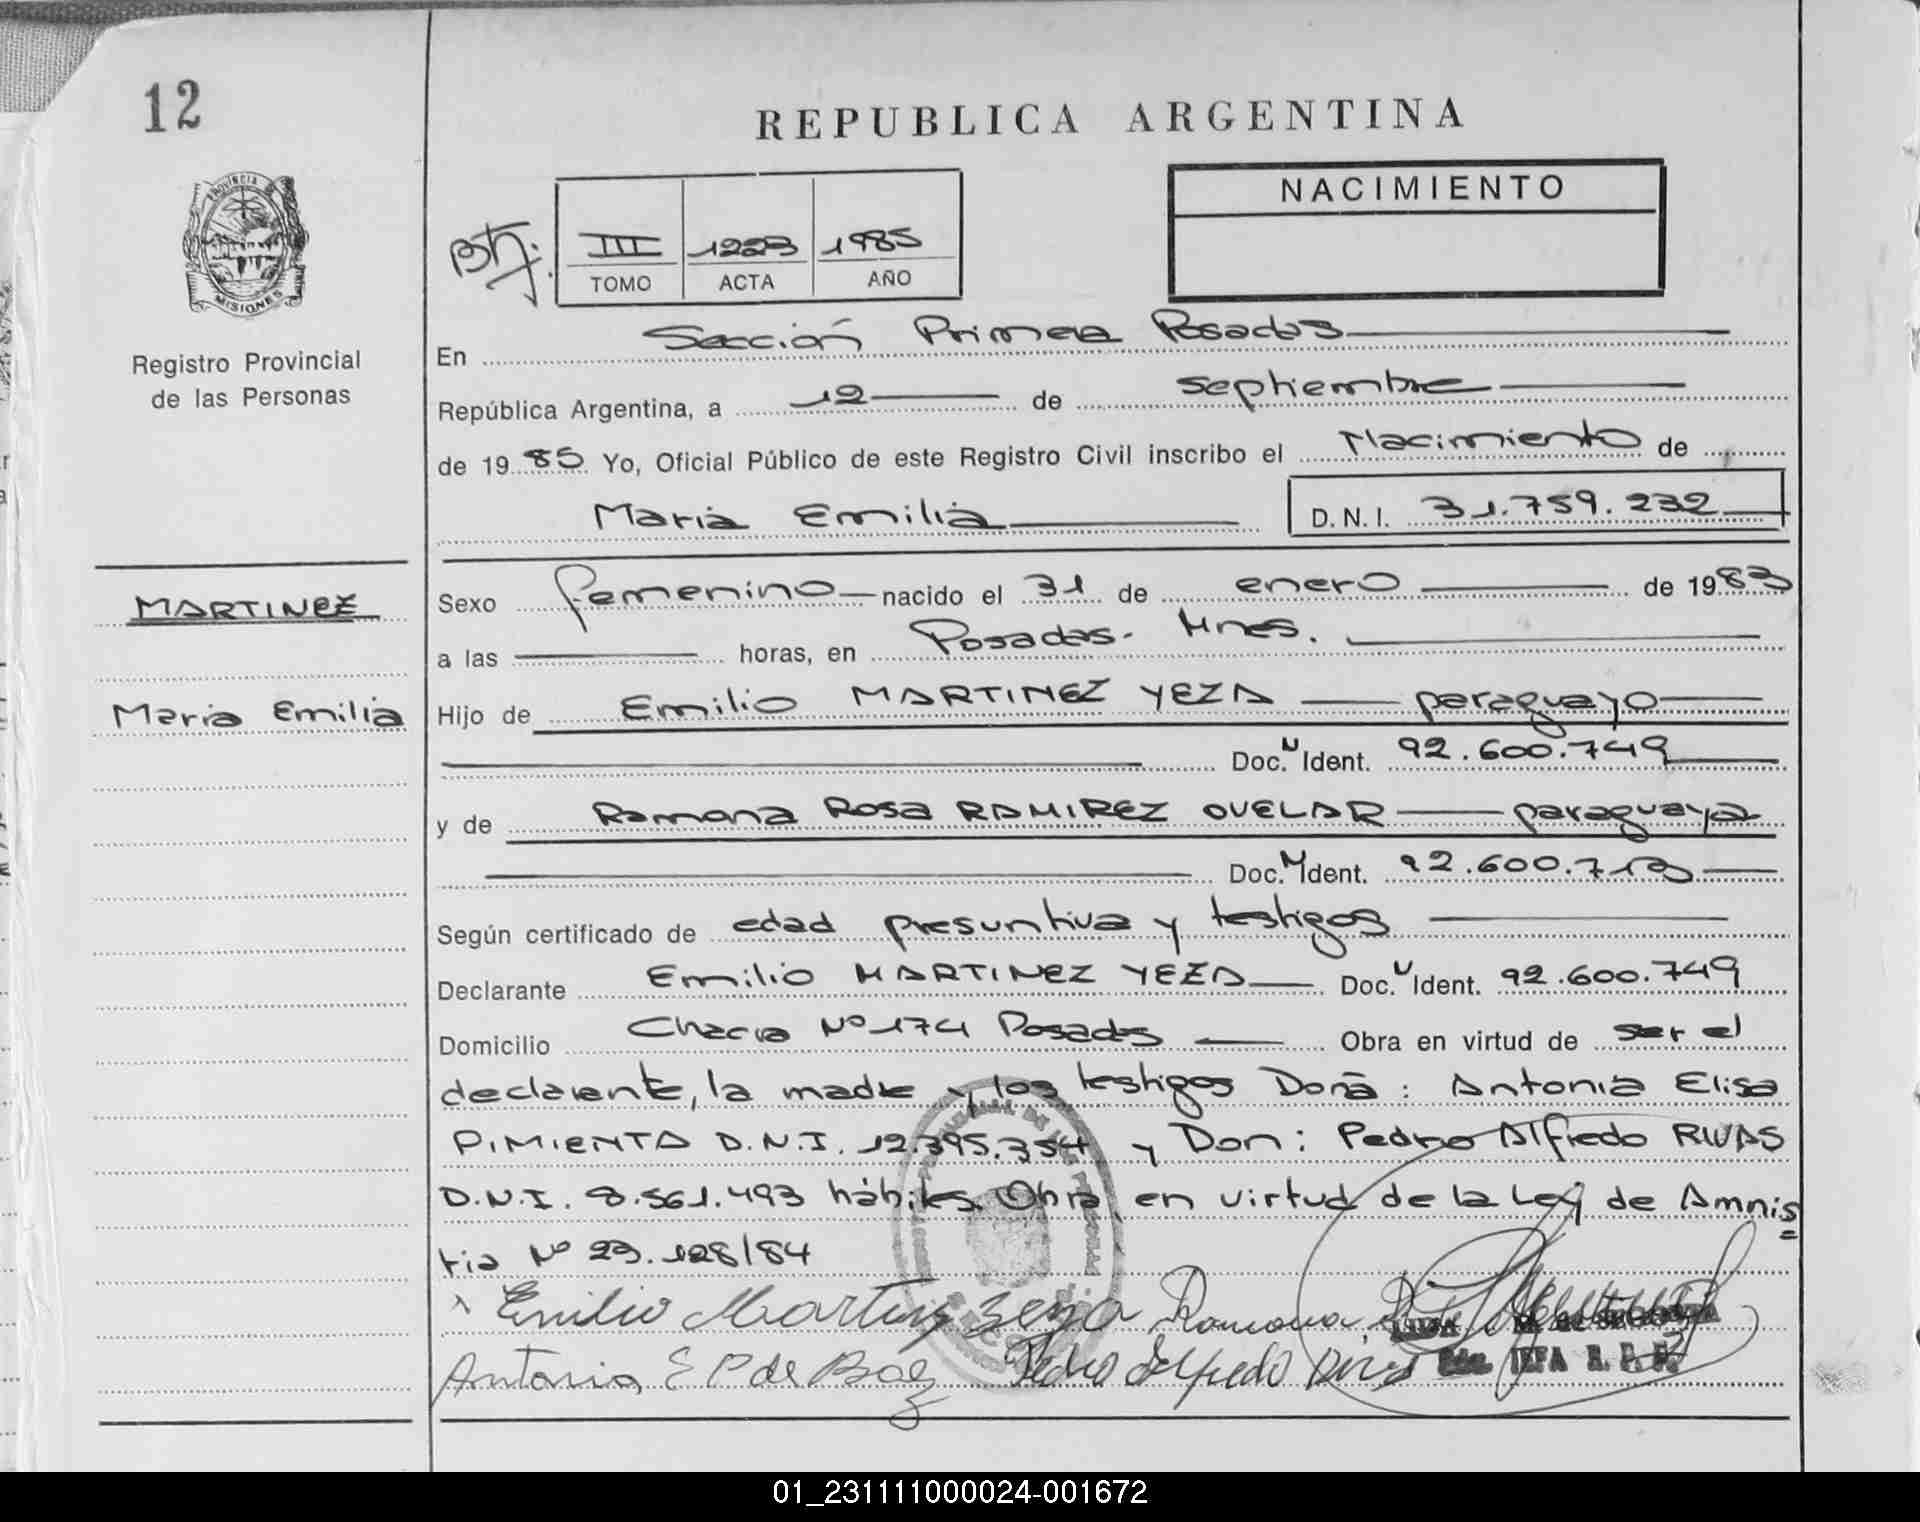 12
REPUBLICA ARGENTINA
PROVINCIA DE
MISIONES
Registro Provincial
de las Personas
III 1223 1985
TOMO ACTA AÑO
NACIMIENTO
En Sección Primera Posadas
República Argentina, a 12 de septiembre
de 1985 Yo, Oficial Público de este Registro Civil inscribo el Nacimiento de
Maria Emilia D. N. I. 31.759.232
MARTINEZ
Maria Emilia
Sexo femenino nacido el 31 de enero de 1983
a las horas, en Posadas. Mnes.
Hijo de Emilio MARTINEZ YEZA paraguayo
Doc. N Ident. 92.600.749
y de Ramona Rosa RAMIREZ OVELAR paraguaya
Doc. N Ident. 92.600.713
Según certificado de edad presuntiva y testigos
Declarante Emilio MARTINEZ YEZA Doc. Ident. 92.600.749
Domicilio Chacra Nº 174 Posadas Obra en virtud de ser el
declarante, la madre y los testigos Doña: Antonia Elisa
PIMIENTA D.N.I. 12.395.354 y Don: Pedro Alfredo RIVAS
D.N.I. 8.561.493 hábiles. Obra en virtud de la Ley de Amnis
tia Nº 23.128/84
Emilio Martinez Yeza Ramona
Antonia E P de Baez Pedro Alfredo Rivas
JEFA R. P. P.
01_231111000024-001672